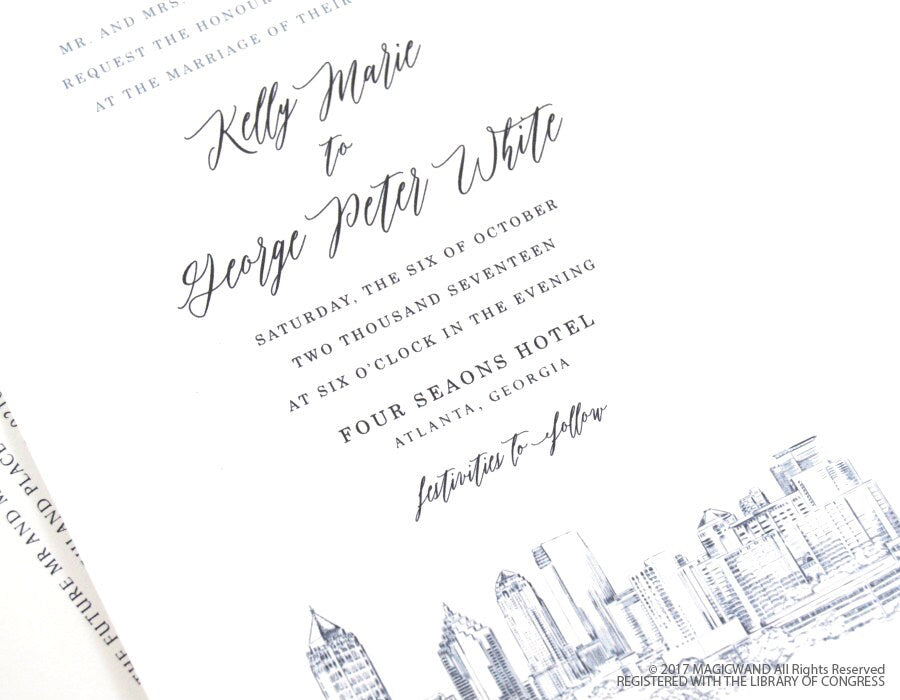 MR. AND MRS.
REQUEST THE HONOUR
AT THE MARRIAGE OF THEIR
Kelly Marie
to
George Peter White
SATURDAY, THE SIX OF OCTOBER
TWO THOUSAND SEVENTEEN
AT SIX O'CLOCK IN THE EVENING
FOUR SEAONS HOTEL
ATLANTA, GEORGIA
festivities to follow
THE FUTURE MR AND
AND PLACE
© 2017 MAGICWAND All Rights Reserved
REGISTERED WITH THE LIBRARY OF CONGRESS